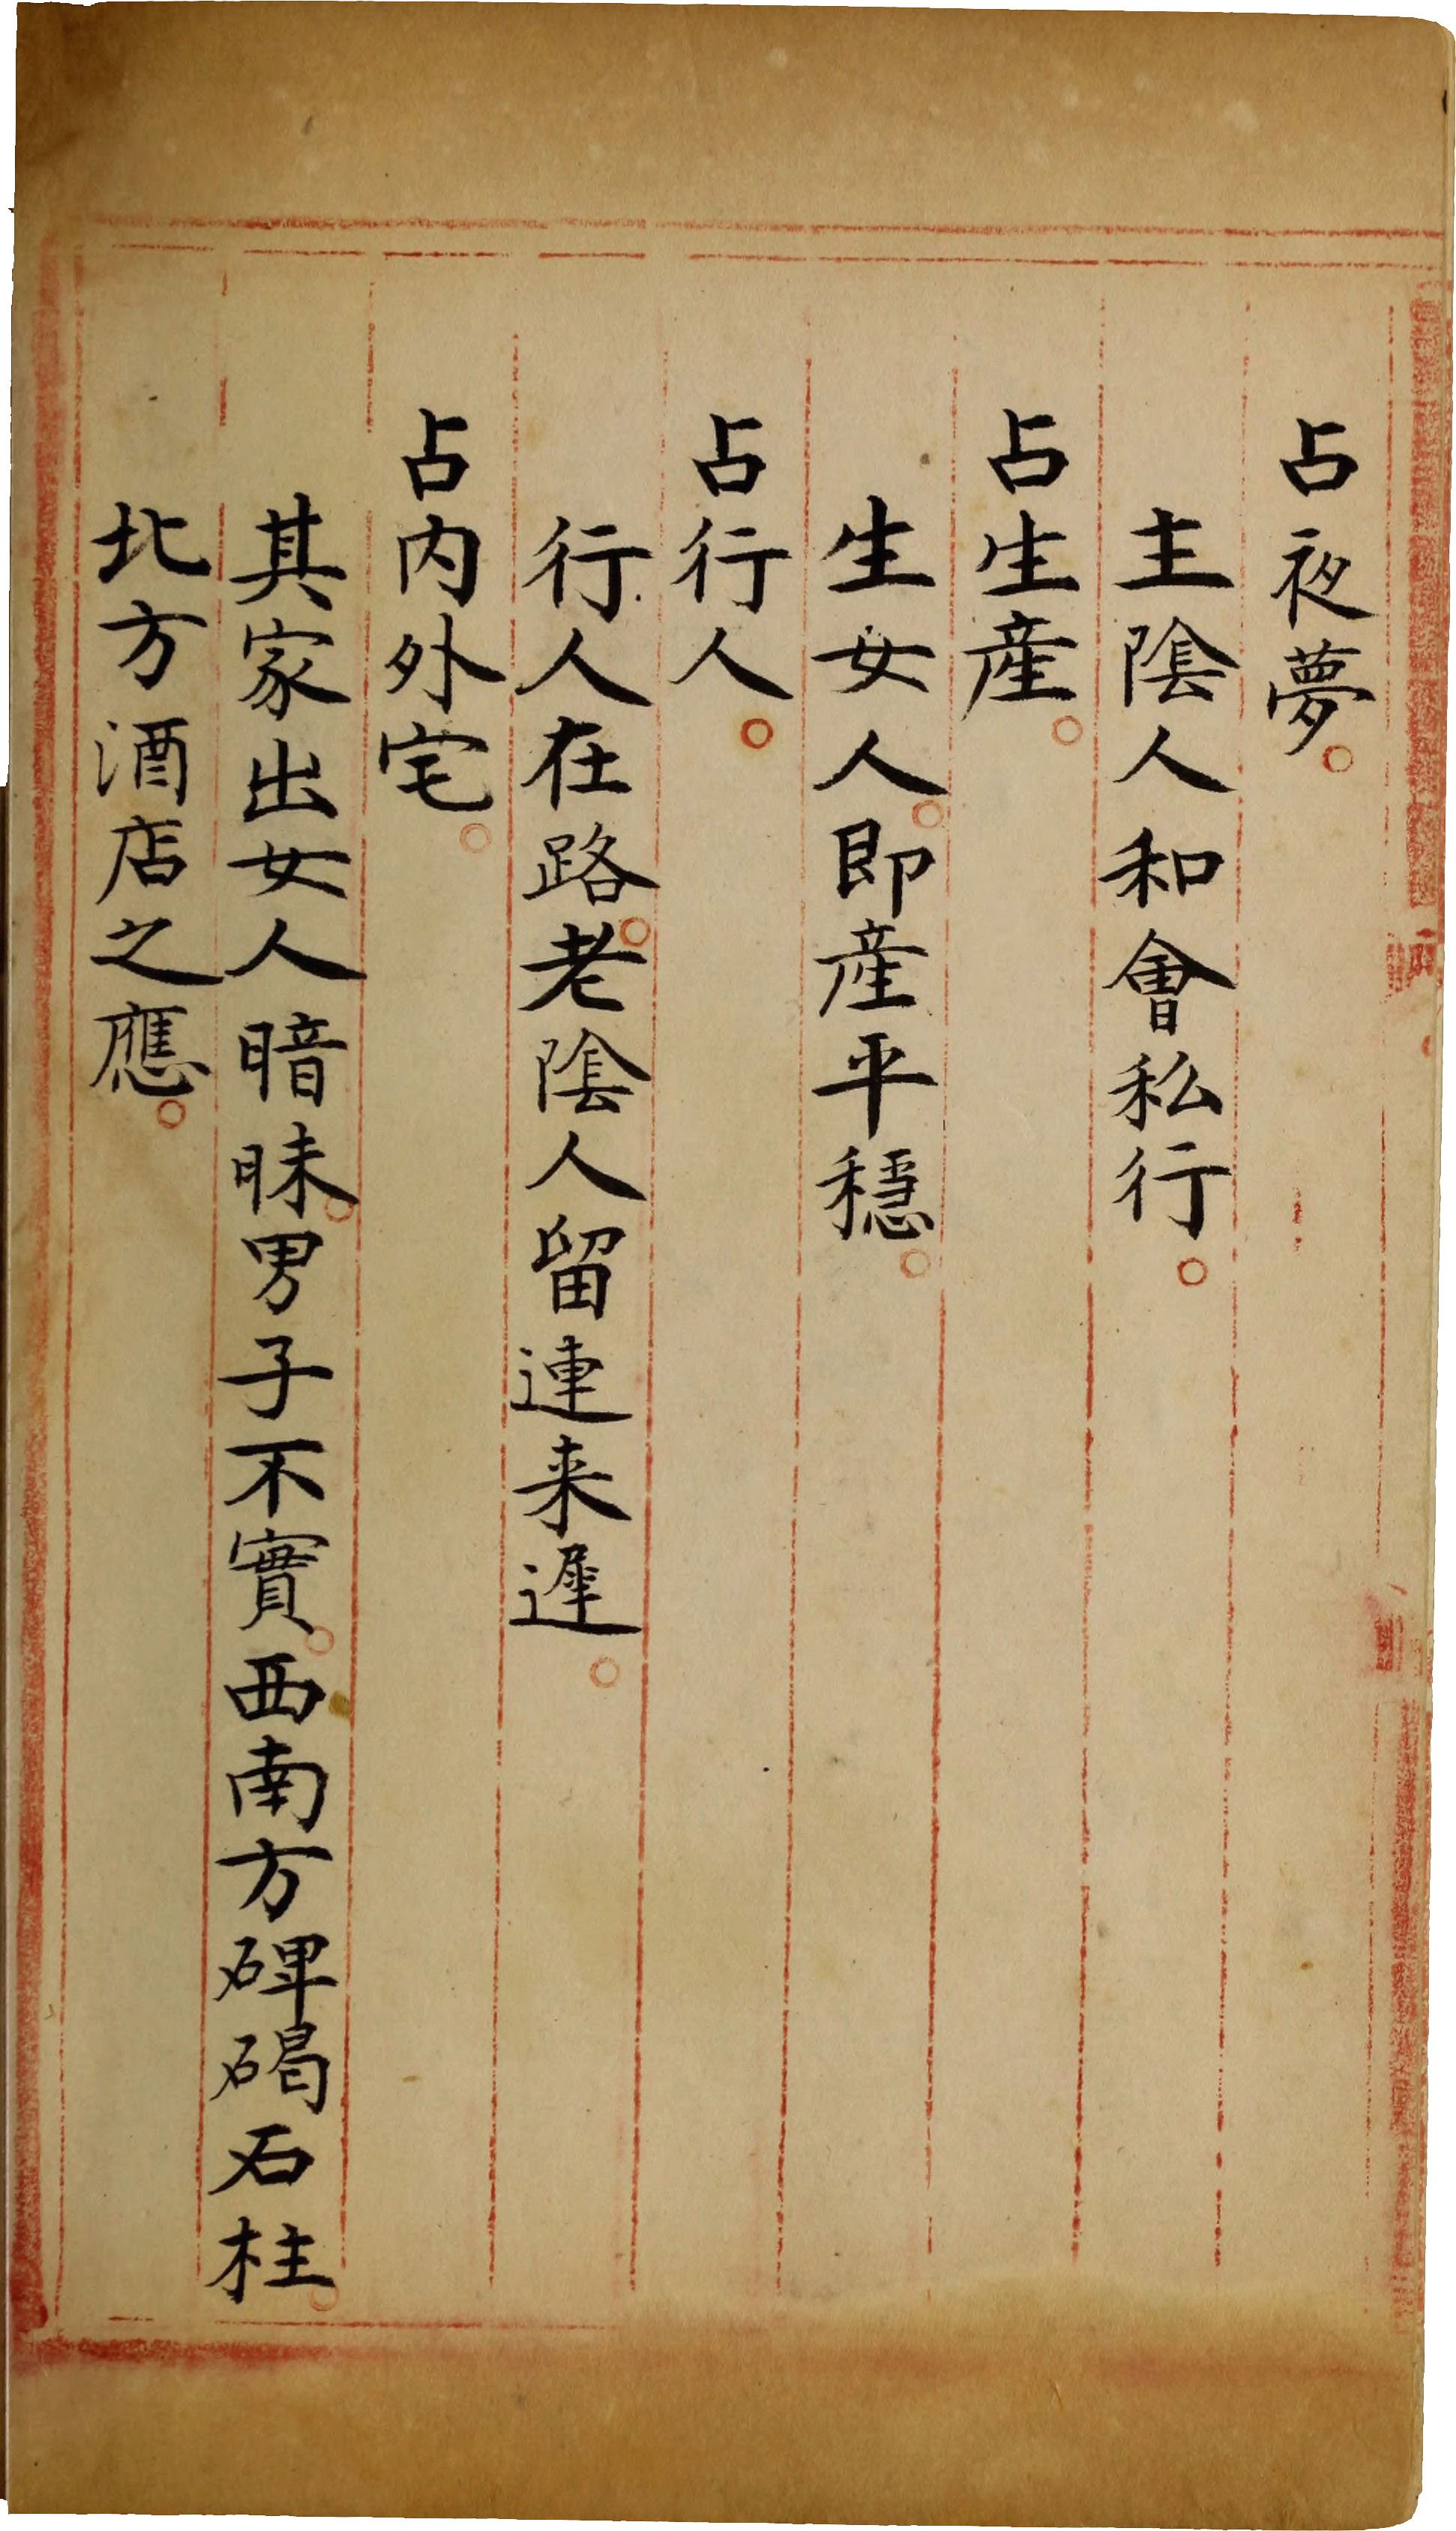 占夜夢。
主陰人和會私行。
占生産。
生女人。即産平穩。
占行人。
行人在路。老陰人留連来遲。
占内外宅。
其家出女人暗昧。男子不實。西南方碑碣石柱。
北方酒店之應。